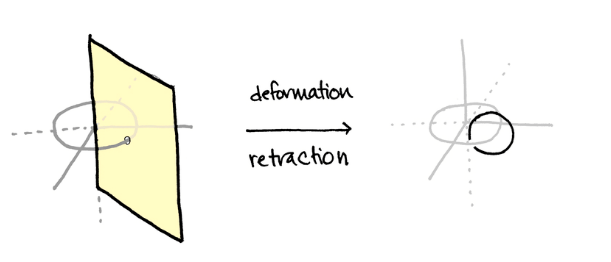 deformation
retraction